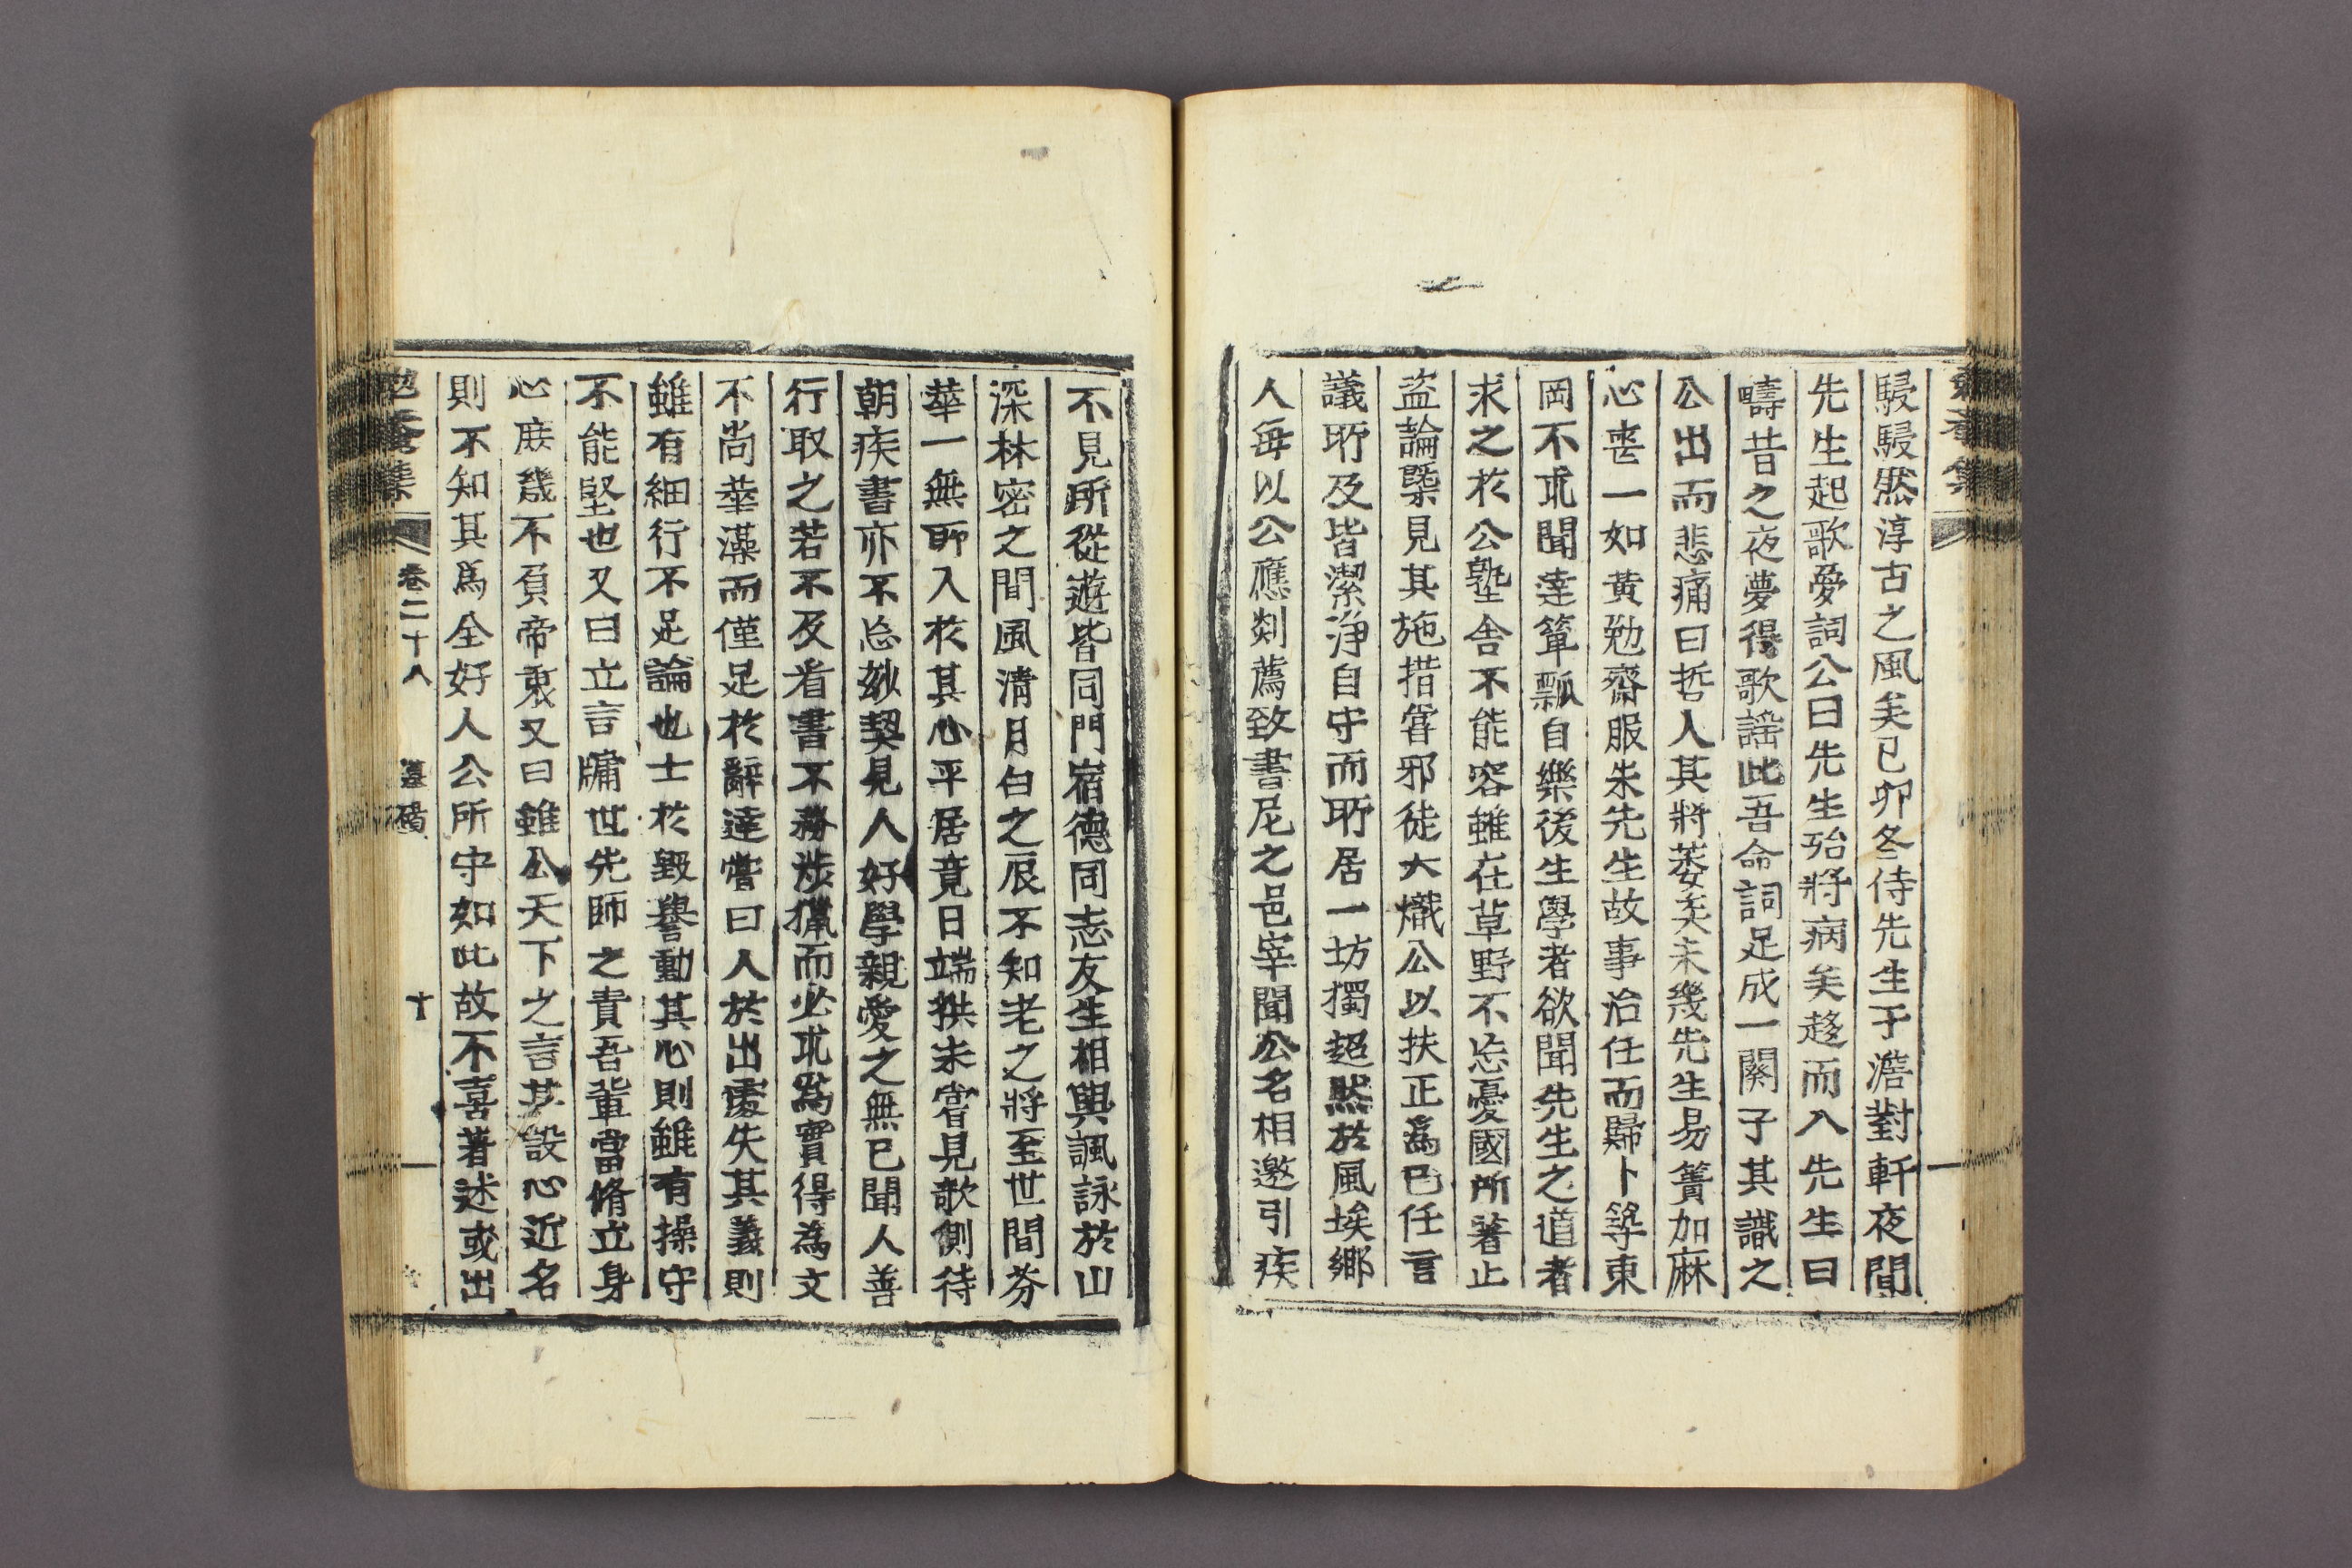 駸駸然淳古之風矣已卯冬侍先生于澔對軒夜間
先生起歌憂詞公曰先生殆將病矣趍而入先生曰
疇昔之夜夢得歌謠此吾命詞足成一闋子其識之
公出而悲痛曰哲人其將萎矣未幾先生易簀加麻
心喪一如黃勉齋服朱先生故事治任而歸卜築東
岡不求聞達簞瓢自樂後生學者欲聞先生之道者
求之於公塾舍不能容雖在草野不忘憂國所著止
盜論槩見其施措甞邪徒大熾公以扶正爲已任言
議所及皆潔淨自守而所居一坊獨超然於風埃鄉
人每以公應剡薦致書尼之邑宰聞公名相邀引疾
不見所從遊皆同門宿德同志友生相與諷詠於山
深林密之間風淸月白之辰不知老之將至世間芬
華一無所入於其心平居竟日端拱未甞見欹側待
朝疾書亦不忘玅契見人好學親愛之無已聞人善
行取之若不及看書不務涉獵而必求爲實得為文
不尚華藻而僅足於辭達嘗曰人於出處失其義則
雖有細行不足論也士於毀譽動其心則雖有操守
不能堅也又曰立言牖世先師之責吾輩當脩立身
心庶幾不負帝衷又曰雖公天下之言其設心近名
則不知其爲全好人公所守如此故不喜著述或出
卷二十八 墓碣 十